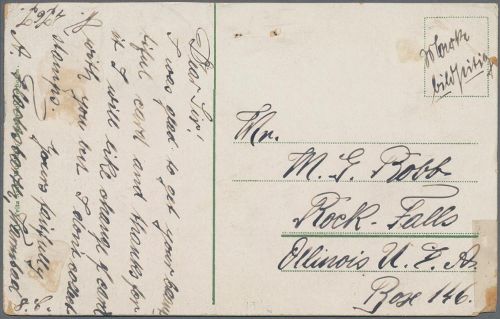 Dear Sir!
I was glad to get your beau
tiful card and thanks for
it I will like change card
with you but I dont collect
stamps.
Yours faithfully
A.
Marke
bildseitig
Mr.
M. G. Robb
Rock-Falls
Illinois U. S. A.
Boxe 146.